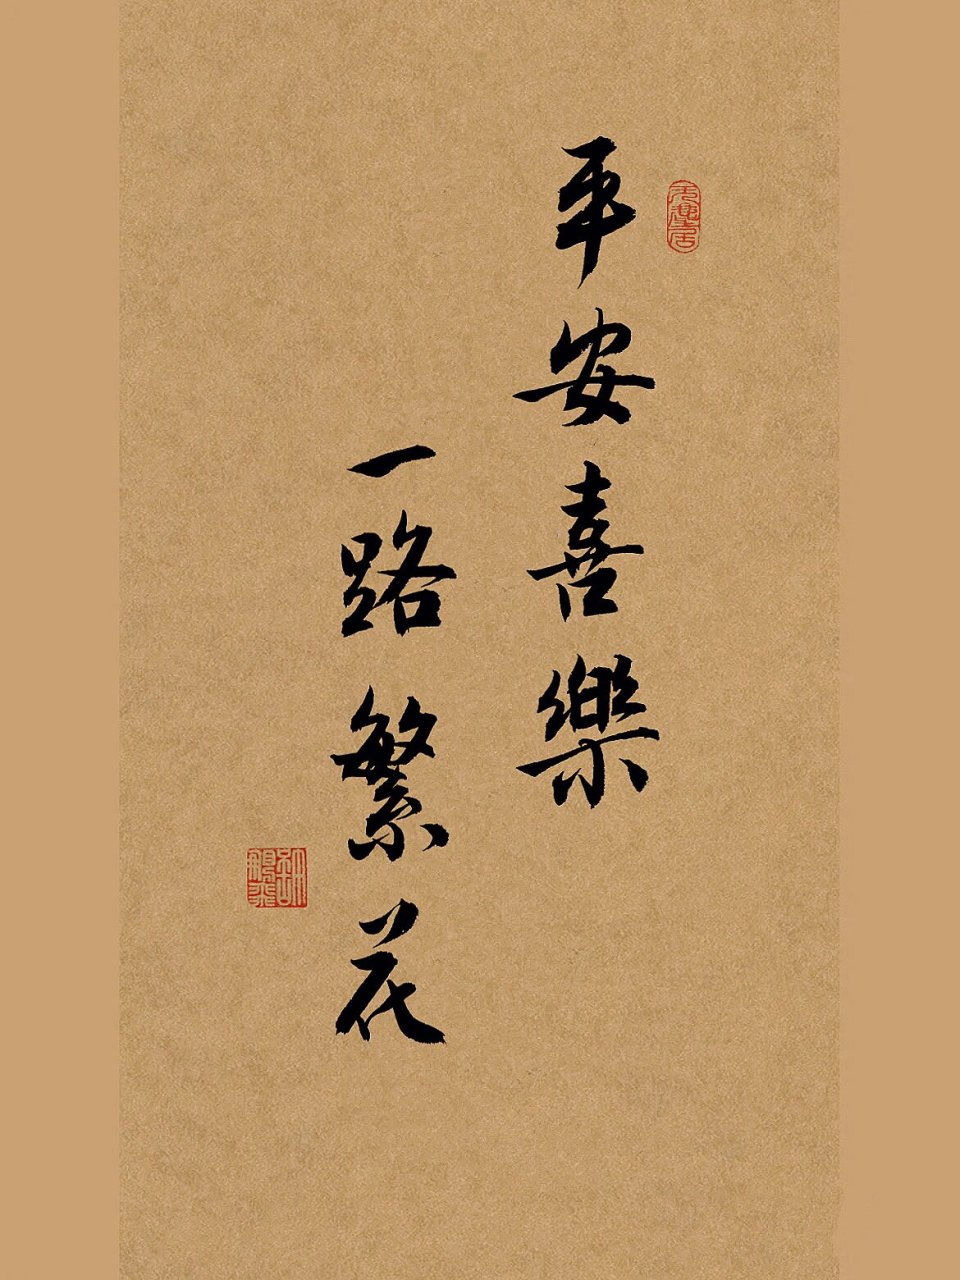 平安喜樂
一路繁花